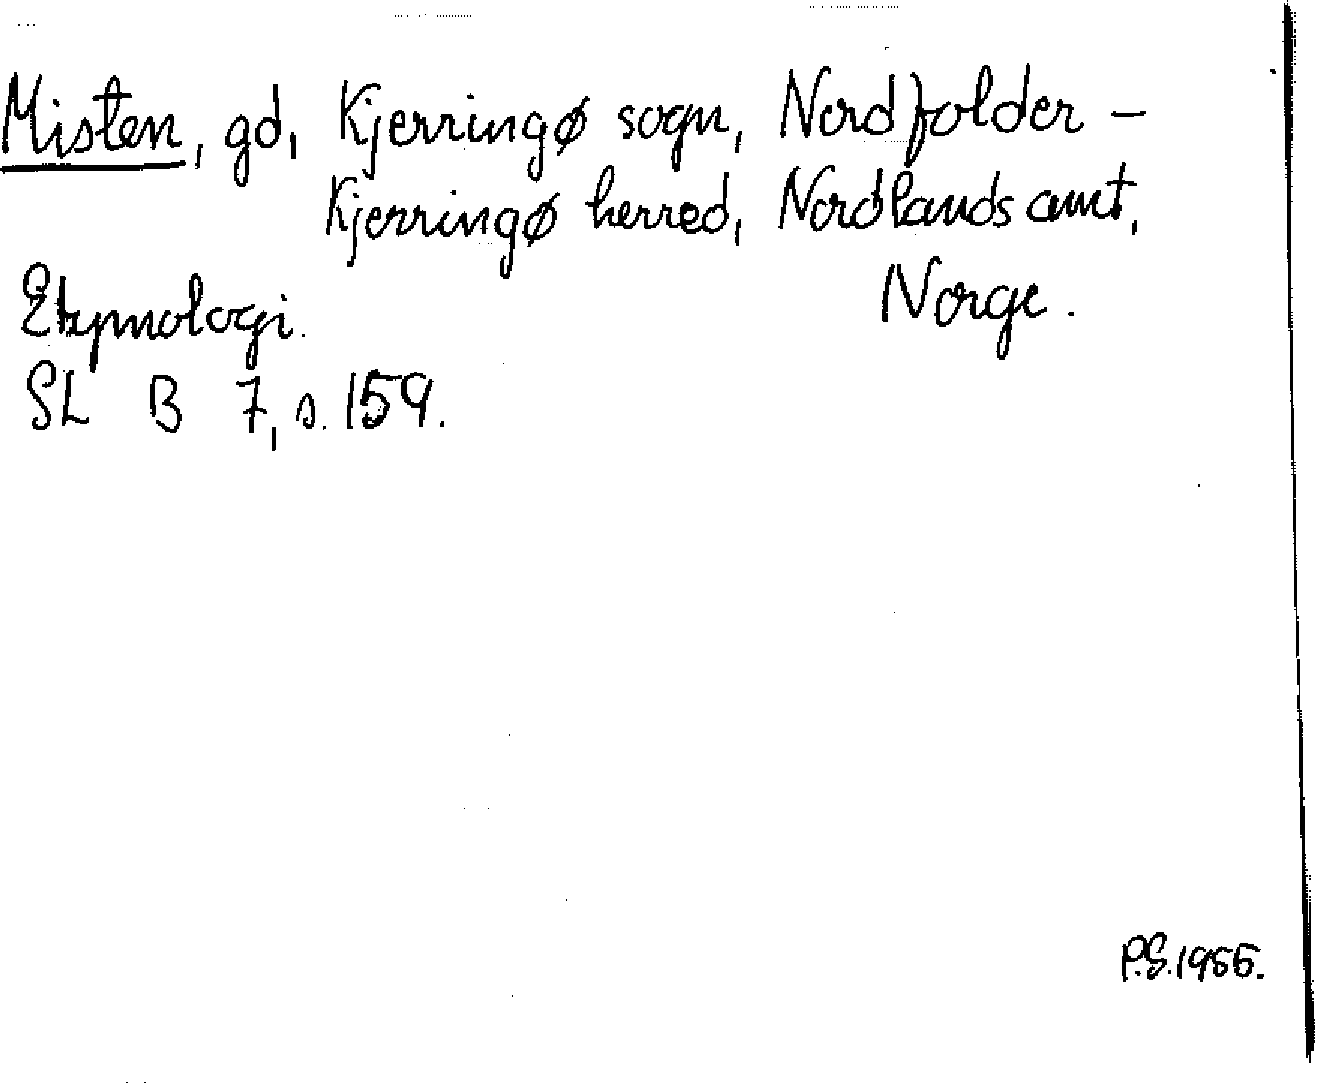 Misten, gd, Kjerringø sogn, Nordfolder –
Kjerringø herred, Nordlands amt,
Norge.
Etymologi.
SL B 7, s. 159.
P.S. 1956.